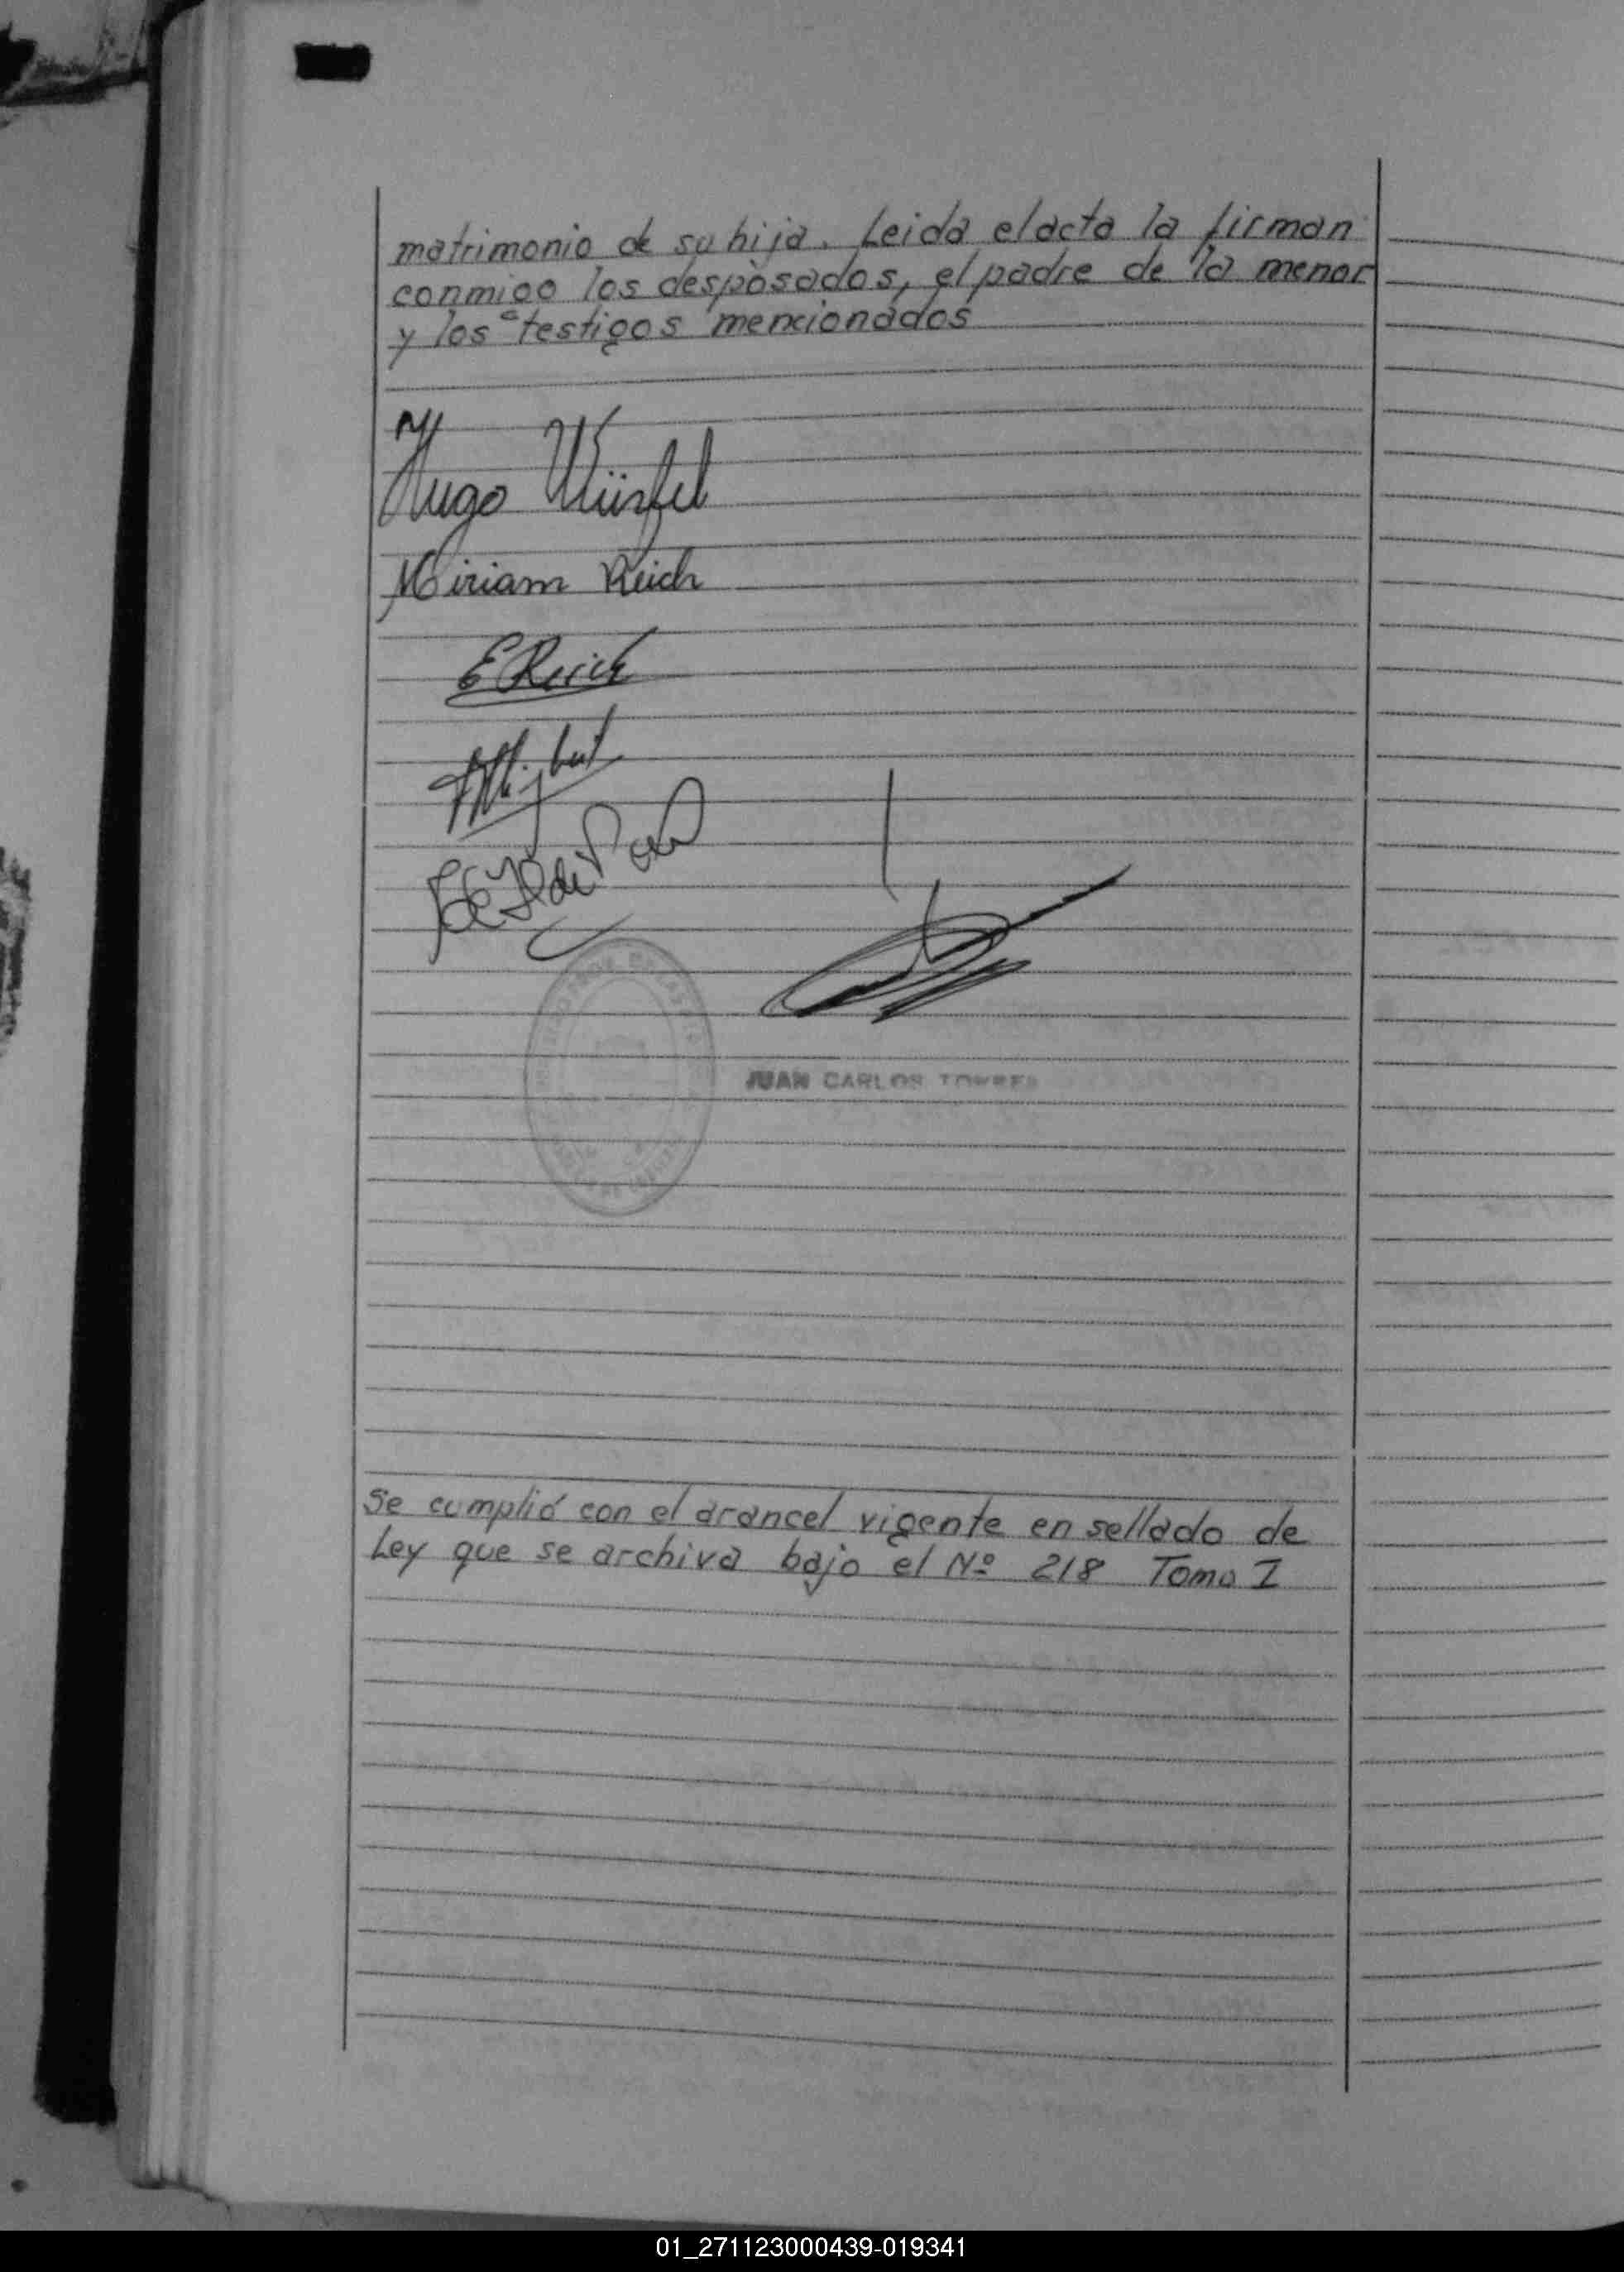 matrimonio de su hija. Leida el acta la firman
conmigo los desposados, el padre de la menor
y los testigos mencionados
Hugo Würfel
Miriam Reich
E Reich
JUAN CARLOS TORRES
Se cumplió con el arancel vigente en sellado de
Ley que se archiva bajo el Nº 218 Tomo I
01_271123000439-019341